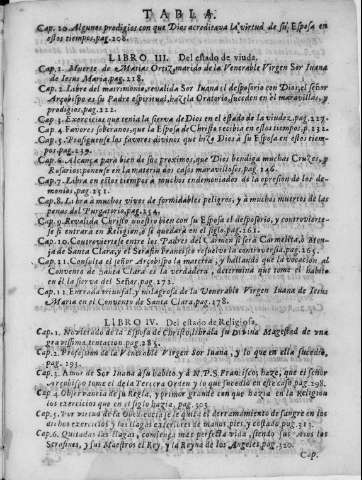 TABLA.
Cap. 20. Algunos prodigios con que Dios acreditava la virtud de su Esposa en
estos tiempos, pag. 208.
LIBRO III. Del estado de viuda.
Cap. 1. Muerte de Matias Ortiz, marido de la Venerable Virgen Sor Iuana
de Iesus Maria, pag. 218.
Cap. 2. Libre del matrimonio, revalida Sor Iuana el desposorio con Dios, el señor
Arçobispo es su Padre espiritual, haze la Oratorio, suceden en él maravillas, y
prodigios, pag. 222.
Cap. 3. Exercicios que tenia la sierva de Dios en el estado de la viudez, pag. 227.
Cap. 4. Favores soberanos, que la Esposa de Christo recibia en estos tiempos, p. 232.
Cap. 5. Prosiguense los favores divinos que hizo Dios à su Esposa en estos tiem-
pos, pag. 239.
Cap. 6. Alcança para bien de sus proximos, que Dios bendiga muchas Cruzes, y
Rosarios: ponense en la materia dos casos maravillosos, pag. 246.
Cap. 7. Libra en estos tiempos à muchos endemoniados de la opresion de los de-
monios, pag. 251.
Cap. 8. Libra à muchos vivos de formidables peligros, y à muchos muertos de las
penas del Purgatorio, pag. 254.
Cap. 9. Revalida Christo nuestro bien con su Esposa el desposorio, y controvierte-
se si entrará en Religion, ò se quedará en el siglo, pag. 261.
Cap. 10. Controviertese entre los Padres del Carmen si será Carmelita, ò Mon-
ja de Santa Clara, y el Serafin Francisco resuelve la controversia, pag. 265.
Cap. 11. Consulta el señor Arçobispo la materia, y hallando que la vocacion al
Convento de Santa Clara es la verdadera, determina que tome el habito
en él la sierva del Señor, pag. 272.
Cap. 12. Entrada triunfal, y milagrosa de la Venerable Virgen Iuana de Iesus
Maria en el Convento de Santa Clara, pag. 278.
LIBRO IV. Del estado de Religiosa.
Cap. 1. Noviciado de la Esposa de Christo, librala su Divina Magestad de vna
gravissima tentacion, pag. 285.
Cap. 2. Profession de la Venerable Virgen Sor Iuana, y lo que en ella sucediò,
pag. 293.
Cap. 3. Amor de Sor Iuana à su habito, y à N. P. S. Francisco; haze, que el señor
Arçobispo tome el de la Tercera Orden, y lo que sucediò en este caso, pag. 298.
Cap. 4. Observancia de su Regla, y primor grande con que hazia en la Religion
los exercicios que en el siglo hazia, pag. 305.
Cap. 5. Por virtud de la Obediencia se le quita el derramamiento de sangre en los
dichos exercicios, y las llagas exteriores de manos, pies, y costado, pag. 313.
Cap. 6. Quitadas las llagas, comiença mas perfecta vida, siendo sus Ayos los
Serafines, y sus Maestros el Rey, y la Reyna de los Angeles, pag. 320.
Cap.